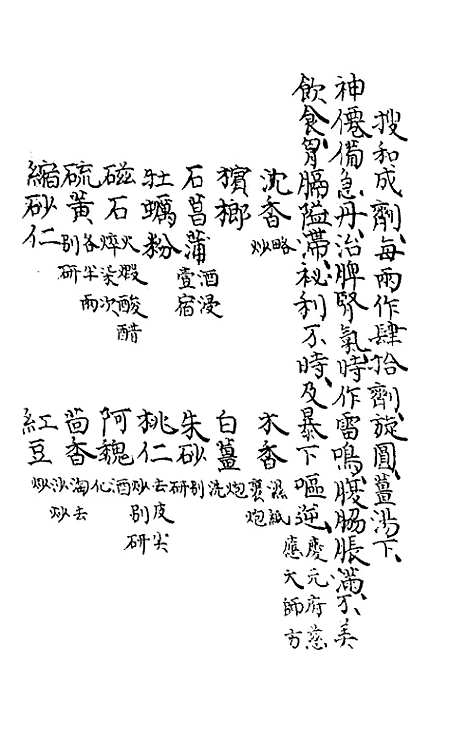 搜和成劑、每兩作肆拾劑、旋圓、薑湯下、
神僊備急丹、治脾腎氣、時作雷鳴、腹脇脹滿、不美
飲食、胷膈隘滯、祕利不時、及暴下嘔逆、慶元府慈應大師方
沈香略炒 木香濕紙裹炮
檳榔 白薑炮洗
石菖蒲酒浸壹宿 朱砂別研
牡蠣粉 桃仁去皮尖炒別研
磁石火煅酸醋焠柒次 阿魏酒化
硫黃各半兩別研 茴香淘去沙炒
縮砂仁 紅豆炒